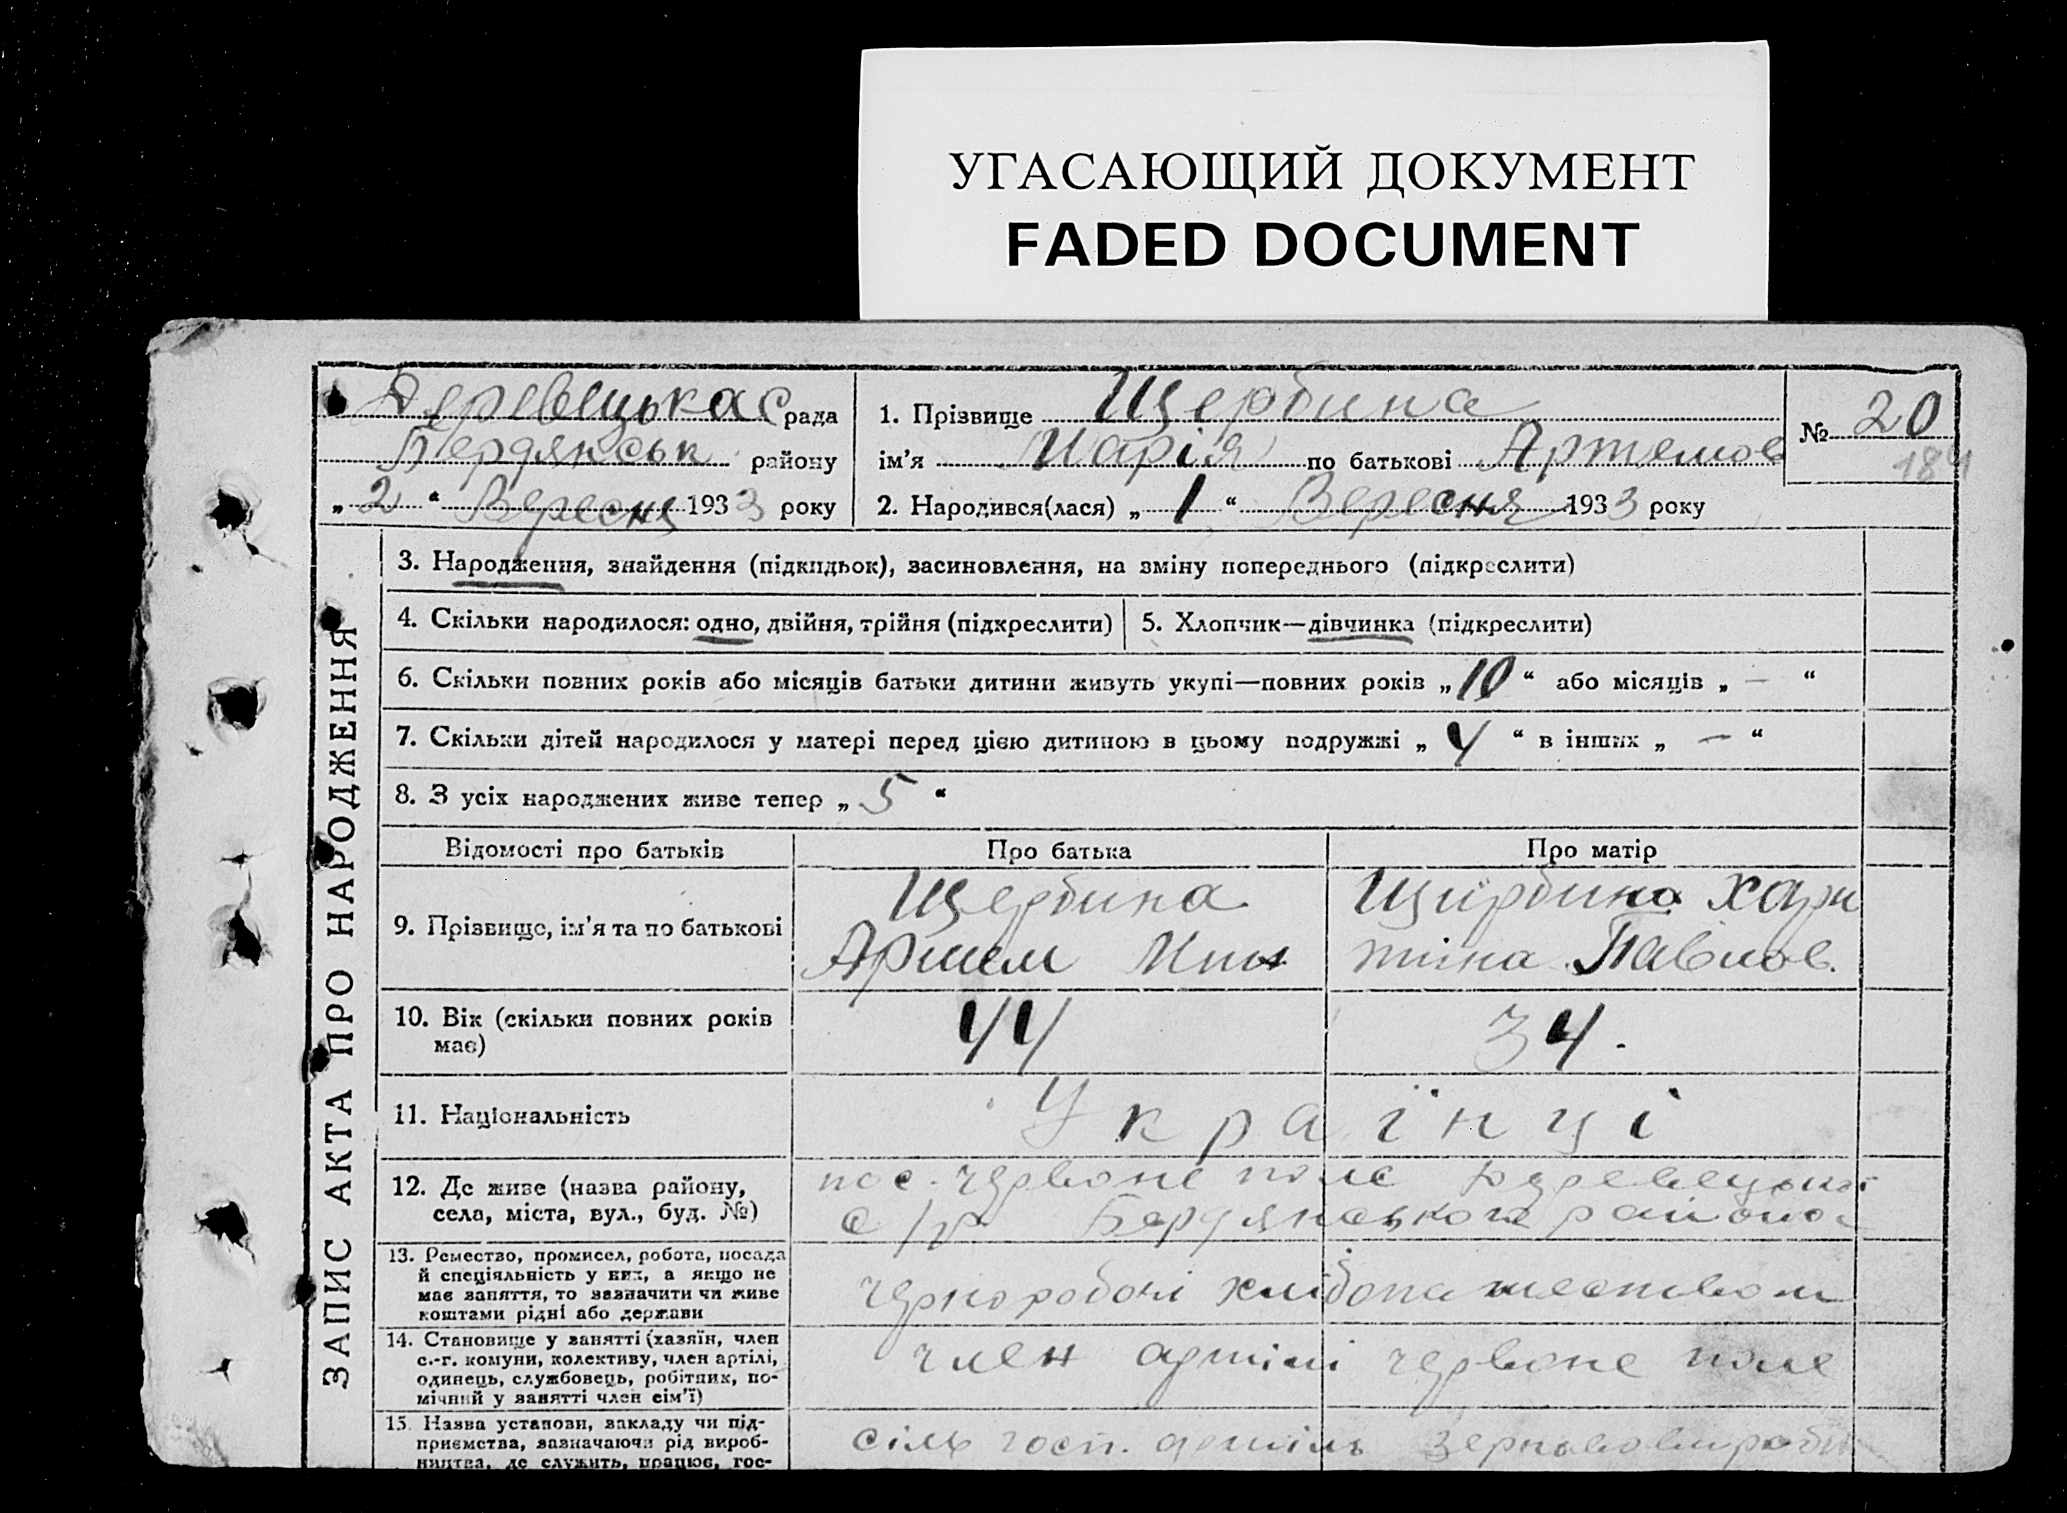 УГАСАЮЩИЙ ДОКУМЕНТ
FADED DOCUMENT
Деревецька с рада
Бердянськ району
„ 2 “ Вересня 1933 року
1. Прізвище Щербина
ім'я Марія по батькові Артемов
2. Народився(лася) „ 1 “ Вересня 1933 року
№ 20
184
ЗАПИС АКТА ПРО НАРОДЖЕННЯ
3. Народження, знайдення (підкидьок), засиновлення, на зміну попереднього (підкреслити)
4. Скільки народилося: одно, двійня, трійня (підкреслити)
5. Хлопчик—дівчинка (підкреслити)
6. Скільки повних років або місяців батьки дитини живуть укупі—повних років „ 10 “ або місяців „ — “
7. Скільки дітей народилося у матері перед цією дитиною в цьому подружжі „ 4 “ в інших „ — “
8. З усіх народжених живе тепер „ 5 “
Відомості про батьків
Про батька
Про матір
9. Прізвище, ім'я та по батькові
Щербина
Артем
Щирбина Хари
тина Павлов.
10. Вік (скільки повних років
має)
44
34.
11. Національність
Українці
12. Де живе (назва району,
села, міста, вул., буд. №)
пос. червоне поле Деревецької
с/р Бердянського району
13. Ремество, промисел, робота, посада
й спеціяльність у них, а якщо не
має заняття, то зазначити чи живе
коштами рідні або держави
чорноробочі
14. Становище у занятті (хазяїн, член
с.-г. комуни, колективу, член артілі,
одинець, службовець, робітник, по-
мічний у занятті член сім'ї)
член артілі червоне поле
15. Назва установи, закладу чи під-
приємства, зазначаючи рід вироб-
ництва, де служить, працює, гос-
сіль госп. артіль